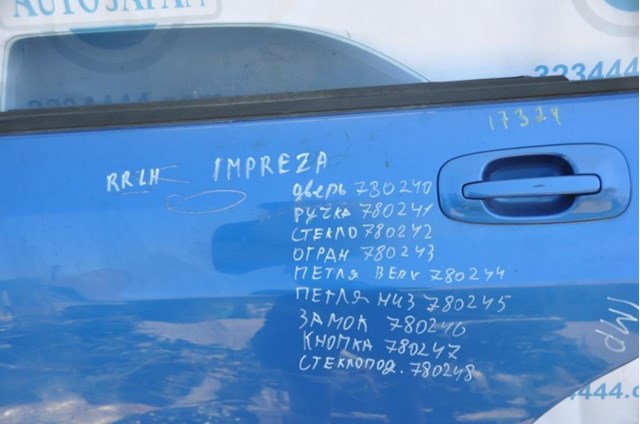 AUTOJAPAN
323444.
323444.c
17324
RRLH IMPREZA
ДВЕРЬ 780240
РУЧКА 780241
СТЕКЛО 780242
ОГРАН 780243
ПЕТЛЯ ВЕРХ 780244
ПЕТЛЯ НИЗ 780245
ЗАМОК 780246
КНОПКА 780247
СТЕКЛОПОД. 780248
444.com